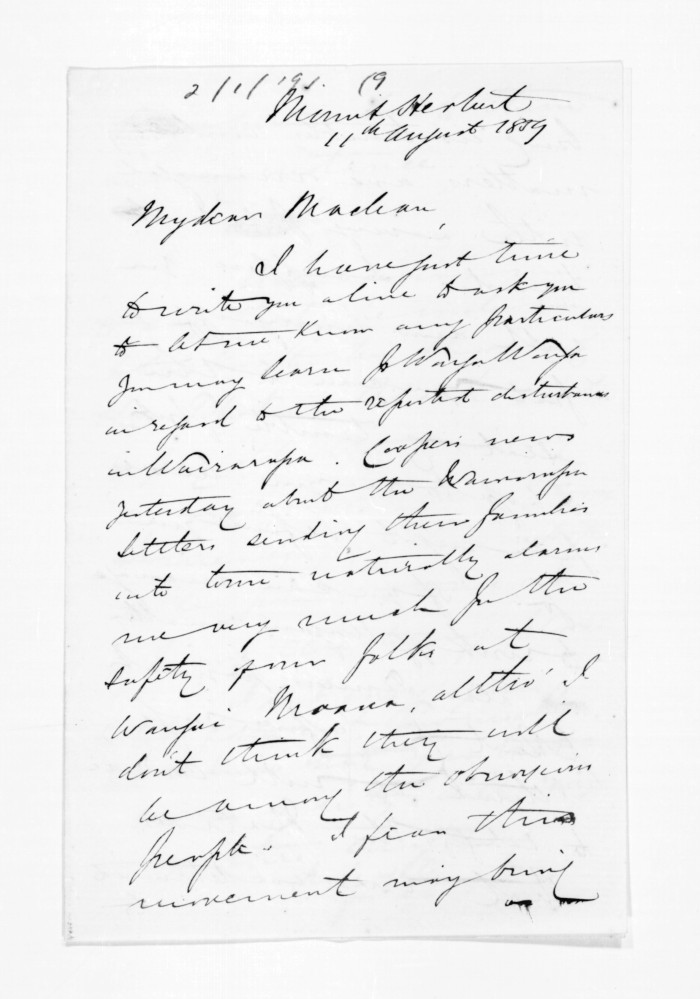 2/1/'91 19
Mount Herbert
11th August 1859
My dear Maclean,
I have just time
to write you a line to ask you
to let me know any particulars
you may learn fr Wanga Wanga
in regard to the reported disturbances
in Wairarapa. Coopers news
yesterday about the Wairarapa
settlers sending their families
into town naturally alarms
me very much for the
safety of our folks at
Wangai Moana, altho' I
don't think they will
be among the obnoxious
people. I fear this
movement may bring